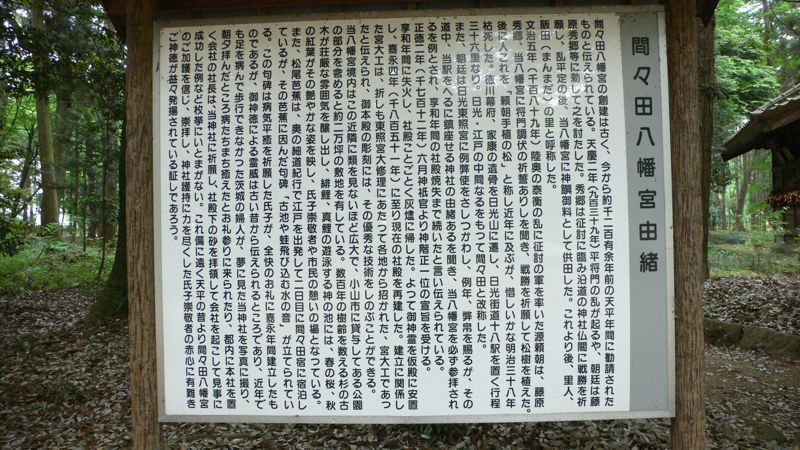 間々田八幡宮由緒
間々田八幡宮の創建は古く、今から約千二百有余年前の天平年間に勧請された
ものと伝えられている。天慶二年（九百三十九年）平将門の乱が起るや、朝廷は藤
原秀郷等に勅して之を討たしむ。秀郷は征討に臨み沿道の神社仏閣に戦勝を祈
願し、乱平定の後、当八幡宮に神饌御料として供田した。これより後、里人、
飯田（まんまだ）の里と呼称した。
文治五年（千百八十九年）陸奥の泰衡の乱に征討の軍を率いた源頼朝は、藤原
秀郷、当八幡宮に将門調伏の祈誓ありしを聞き、戦勝を祈願して松樹を植えた。
後に人これを「頼朝手植の松」と称し近年に及ぶが、惜しいかな明治三十八年
枯死した。徳川幕府、家康の遺骨を日光山に遷し、日光街道十八駅を置く行程
三十六里なり。日光・江戸の中間なるをもつて間々田と改称した。
また、朝廷は日光東照宮に例幣使をさしつかわし、例年、弊帛を賜るが、その
道中、当駅をへるに鎮座せる神社の由緒あるを聞き、当八幡宮を必ず参拝され
るを例とされ、享和年間の社殿焼失まで続いたと言い伝えられている。
正徳年（千七百十二年）六月神祇官より神階正一位の宣旨を受ける。
享和年間に失火し、社殿ことごとく灰燼に帰した。よつて御神霊を仮殿に安置
し、嘉永四年（千八百五十一年）に至り現在の社殿を再建した。建立に関係し
た宮大工は、折しも東照宮大修理にあたつて各地から招かれた、宮大工であつ
たと伝えられ、御本殿の彫刻には、その優秀な技術をしのぶことができる。
当八幡宮境内はこの近隣に類を見ないほど広大で、小山市に貸与してある公園
の部分を含めると約二万坪の敷地を有している。数百年の樹齢を数える杉の古
木が荘厳な雰囲気を醸し出し、緋鯉、真鯉の遊泳する神の池には、春の桜、秋
の紅葉がその艶やかな姿を映し、氏子崇敬者や市民の憩いの場となつている。
また、松尾芭蕉は、奥の細道紀行で江戸を出発して二日目に間々田宿に宿泊し
ているが、その芭蕉に因んだ句碑「古池や蛙飛び込む水の音」が立てられてい
る。この句碑は病気平癒を祈願した氏子が、全快のお礼に嘉永年間建立したも
のであるが、御神徳による霊威は古い昔から伝えられるところであり、近年で
も足を病んで歩行できなかつた茨城の婦人が、夢に見た当神社を写真に撮り、
朝夕拝んだところ病たちまち癒えたとお礼参りに来られたり、都内に本社を置
く会社の社長は、当神社に祈願し、社殿下の砂を拝領して会社を起こして見事に
成功した例など枚挙にいとまがない。これ偏に遠く天平の昔より間々田八幡宮
のご加護を信じ、崇拝し、神社護持に力を尽くした氏子崇敬者の赤心に有難き
ご神徳が益々発揚されている証しであろう。